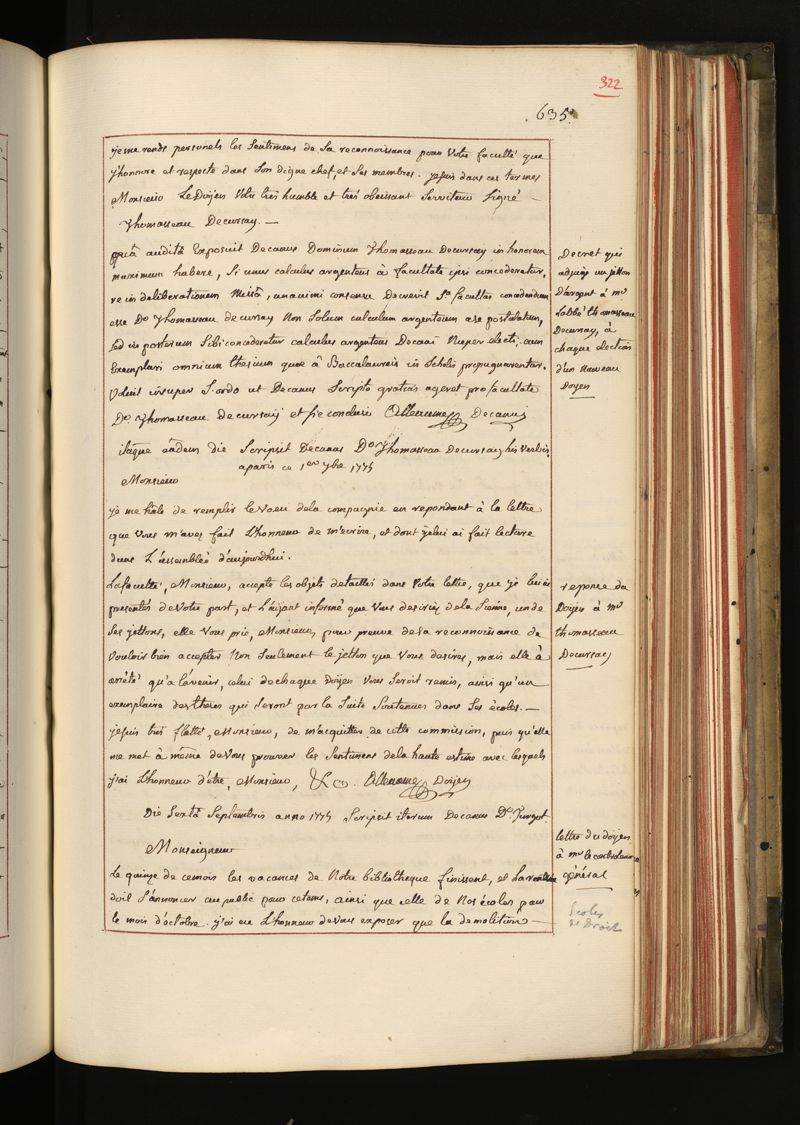 322
635.
je me rends personels les Sentimens de Sa reconnoissance pour Votre faculté que
j'honnore et respecte dans Son digne chef, et Ses membres. je suis dans ces termes
Monsieur Le Doÿen Votre très humble et très obeissant Serviteur Signé
Thomasseau Decursay. —
quâ auditâ Exposuit Decanus Dominum Thomasseau Decursay in honorem
maximum habere, Si unus calculus argenteus à facultate ipsi concederetur,
re in deliberationem Missâ, unanimi consensu Decrevit Sa. facultas concedendum
esse Do. Thomasseau decursay Non Solum calculum argenteum a se postulatum,
Sed in posterum Sibi concederetur calculus argenteus Decani Nuper electi, cum
Exemplari omnium thesium quæ à Baccalaureis in Scholis propugnarentur.
Voluit insuper S. ordo ut Decanus Scripto gratias ageret pro facultate
Do. Thomasseau decursay et sic conclusit Alleaume Decanus
Decret qui
adjuge un jetton
D'argent à mr
L'abbé thomasseau
Decursay, à
chaque Election
d'un nouveau
Doyen
itaque eâdem die Scripsit Decanus Do Thomasseau Decursay his Verbis.
a paris ce 1er 7bre 1775
Monsieur
je me hâte de remplir le Voeu de la compagnie en repondant à la lettre
que Vous m'avez fait L'honneur de m'ecrire, et dont je lui ai fait lecture
dans L'assemblée d'aujourdhui.
La faculté, Monsieur, accepte les objets detaillés dans Votre lettre, que je lui ai
presentés de Votre part, et L'aÿant informé que Vous desiriez de la Sienne, un de
Ses jettons, elle Vous prie, Monsieur, pour preuve de sa reconnoissance de
Vouloir bien accepter Non Seulement le jetton que Vous desirez, mais elle à
arrêté qu'a l'avenir, celui de chaque Doÿen Vous Seroit remis, ainsi qu'un
exemplaire des theses qui Seront par la Suite Soutenues dans Ses écoles. —
je suis très flatté, Monsieur, de m'acquitter de cette commission, puis qu'elle
me met à même de Vous prouver les Sentimens de la haute estime avec lesquels
j'ai L'honneur d'être, Monsieur, &c. Alleaume Doÿen
reponse du
Doÿen à mr
thomasseau
Decursay
Die Sextâ Septembris anno 1775 Scripsit iterum Decanus D. Turgot.
Monseigneur
Le quinze de ce mois les vacances de Notre bibliotheque finissent, et La rentrée
doit S'annoncer au public pour ce tems, ainsi que celle de Nos écoles pour
le mois d'octobre. j'ai eu L'honneur de Vous exposer que la demolition —
lettre du doÿen
à mr le controleur
général
Ecoles
de Droit